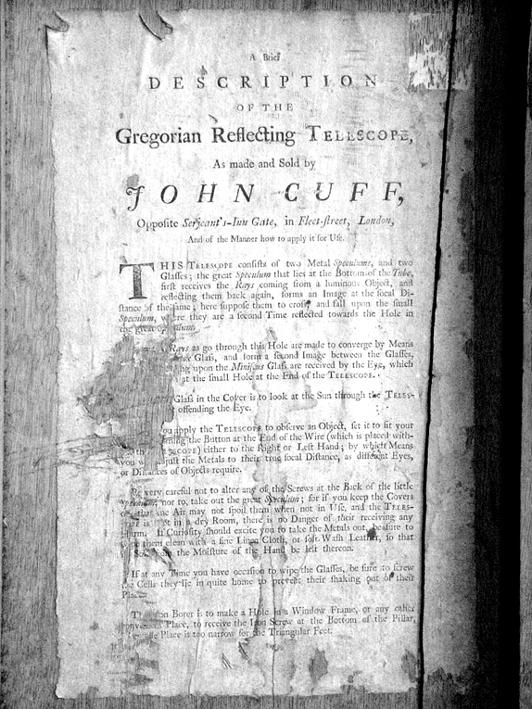 A Brief
DESCRIPTION
OF THE
Gregorian Reflecting TELESCOPE,
As made and Sold by
JOHN CUFF,
Opposite Serjeant's-Inn Gate, in Fleet-street, London,
And of the Manner how to apply it for Use.
THIS TELESCOPE consists of two Metal Speculums, and two
Glasses; the great Speculum that lies at the Bottom of the Tube,
first receives the Rays coming from a luminous Object, and
reflecting them back again, forms an Image at the focal Di-
stance of the same; here suppose them to cross, and fall upon the small
Speculum, where they are a second Time reflected towards the Hole in
the great
Rays as go through this Hole are made to converge by Means
Glass, and form a second Image between the Glasses,
upon the Minifous Glass are received by the Eye, which
at the small Hole at the End of the TELESCOPE.
Glass in the Cover is to look at the Sun through the TELES-
offending the Eye.
you apply the TELESCOPE to observe an Object, set it to fit your
the Button at the End of the Wire (which is placed with-
either to the Right or Left Hand; by which Means
you adjust the Metals to their true focal Distance, as different Eyes,
or Distances of Objects require.
Be very careful not to alter any of the Screws at the Back of the little
nor to take out the great Speculum; for if you keep the Covers
that the Air may not spoil them when not in Use, and the TELES-
is not in a dry Room, there is no Danger of their receiving any
If Curiosity should excite you to take the Metals out, be sure to
them clean with a fine Linen Cloth, or soft Wash Leather, so that
the Moisture of the Hand be left thereon.
If at any Time you have occasion to wipe the Glasses, be sure to screw
the Cells they lie in quite home to prevent their shaking out of their
Places.
Borer is to make a Hole in a Window Frame, or any other
Place, to receive the Iron Screw at the Bottom of the Pillar,
Place is too narrow for the Triangular Feet.